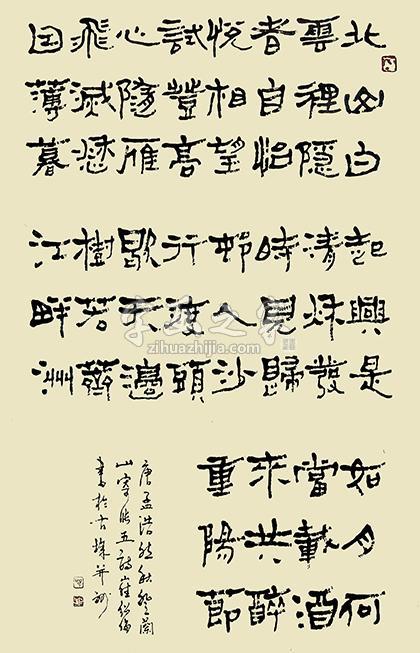 北山白
雲裡隱
者自怡
悅相望
試登高
心隨雁
飛滅愁
因薄暮
起興是
清秌發
時見歸
邨人沙
行渡頭
歇天邊
樹若薺
江畔洲
如月何
當載酒
來共醉
重陽節
唐孟浩然秋登蘭
山寄張五詩崔
書於古
字画之家
zihuazhijia.com